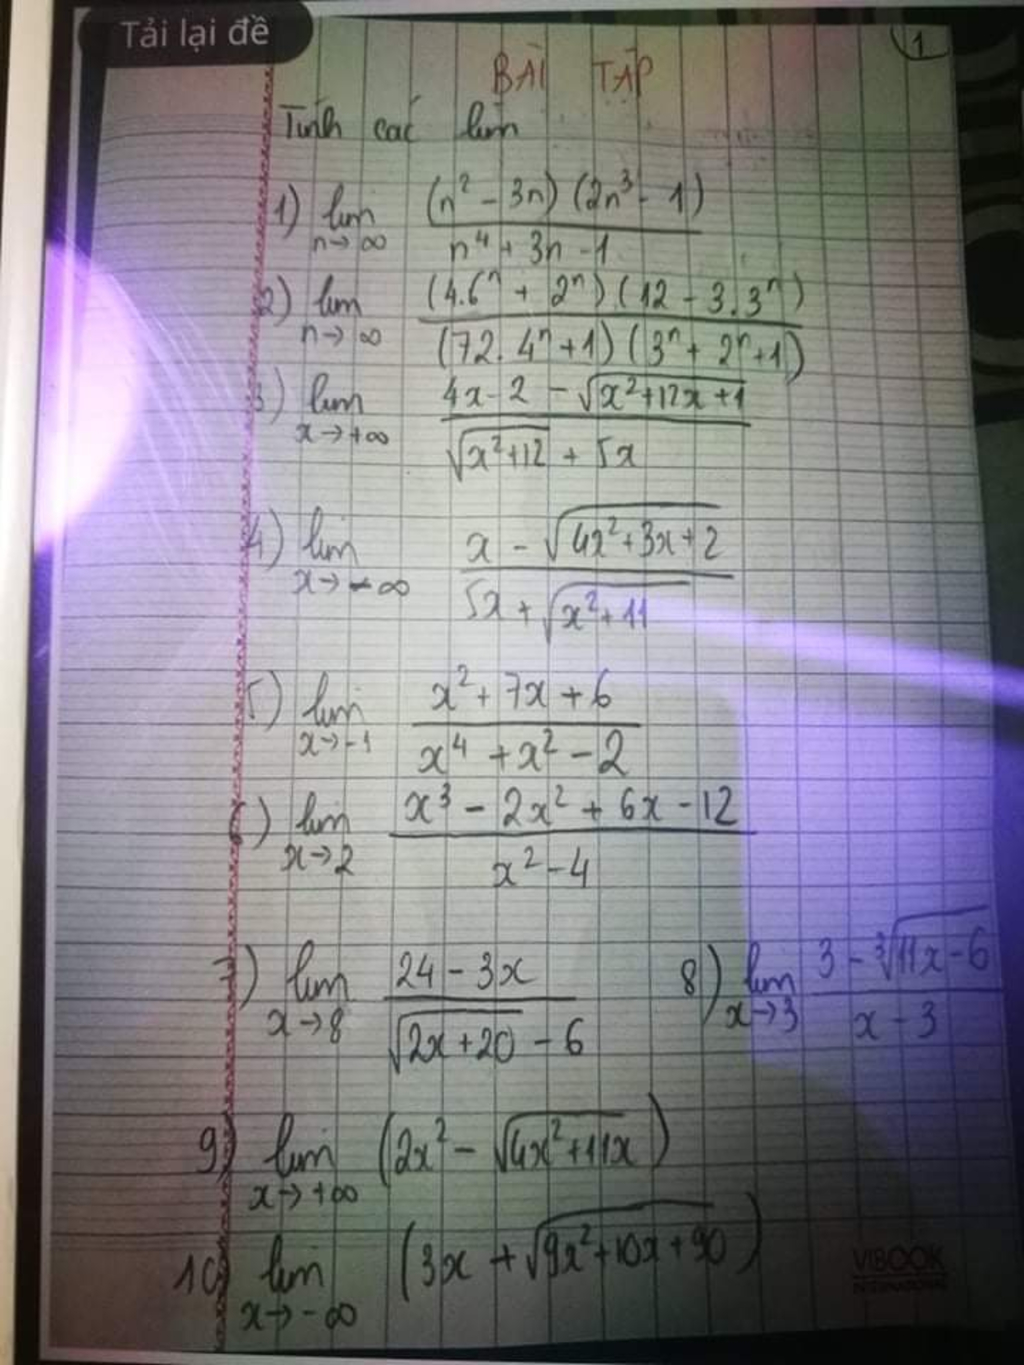 Tải lại đề
1
BÀI TẬP
Tính các lim
1) lim n→∞ (n² - 3n)(2n³ - 1) / n⁴ + 3n - 1
2) lim n→∞ (4.6ⁿ + 2ⁿ)(12 - 3.3ⁿ) / (72.4ⁿ + 1)(3ⁿ + 2ⁿ + 1)
3) lim x→+∞ 4x - 2 - √(x² + 12x + 1) / √(x² + 12) + 5x
4) lim x→-∞ x - √(4x² + 3x + 2) / 5x + √(x² + 11)
5) lim x→-1 x² + 7x + 6 / x⁴ + x² - 2
6) lim x→2 x³ - 2x² + 6x - 12 / x² - 4
7) lim x→8 24 - 3x / √(2x + 20) - 6
8) lim x→3 3 - ∛(11x - 6) / x - 3
9) lim x→+∞ (2x² - √(4x² + 11x))
10) lim x→-∞ (3x + √(9x² + 10x + 90))
VIBOOK
INTERNATIONAL